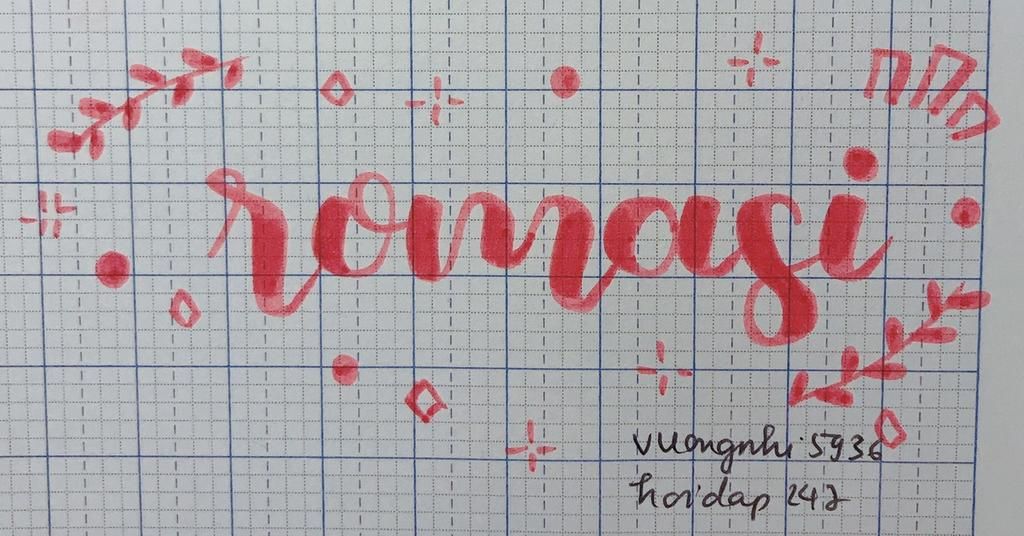 romasi
vuongnhi 5936
hoidap 247